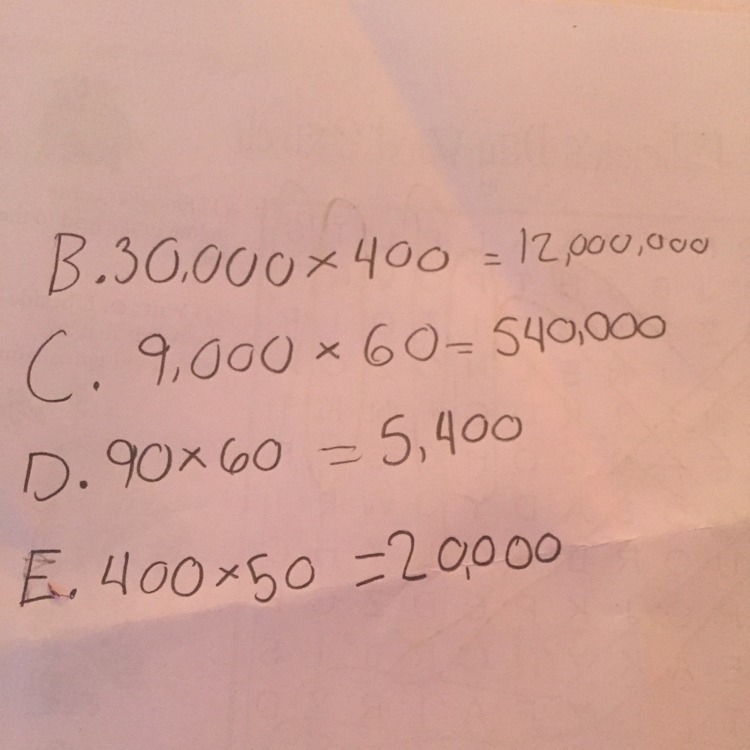 B. 30,000 × 400 = 12,000,000
C. 9,000 × 60 = 540,000
D. 90 × 60 = 5,400
E. 400 × 50 = 20,000